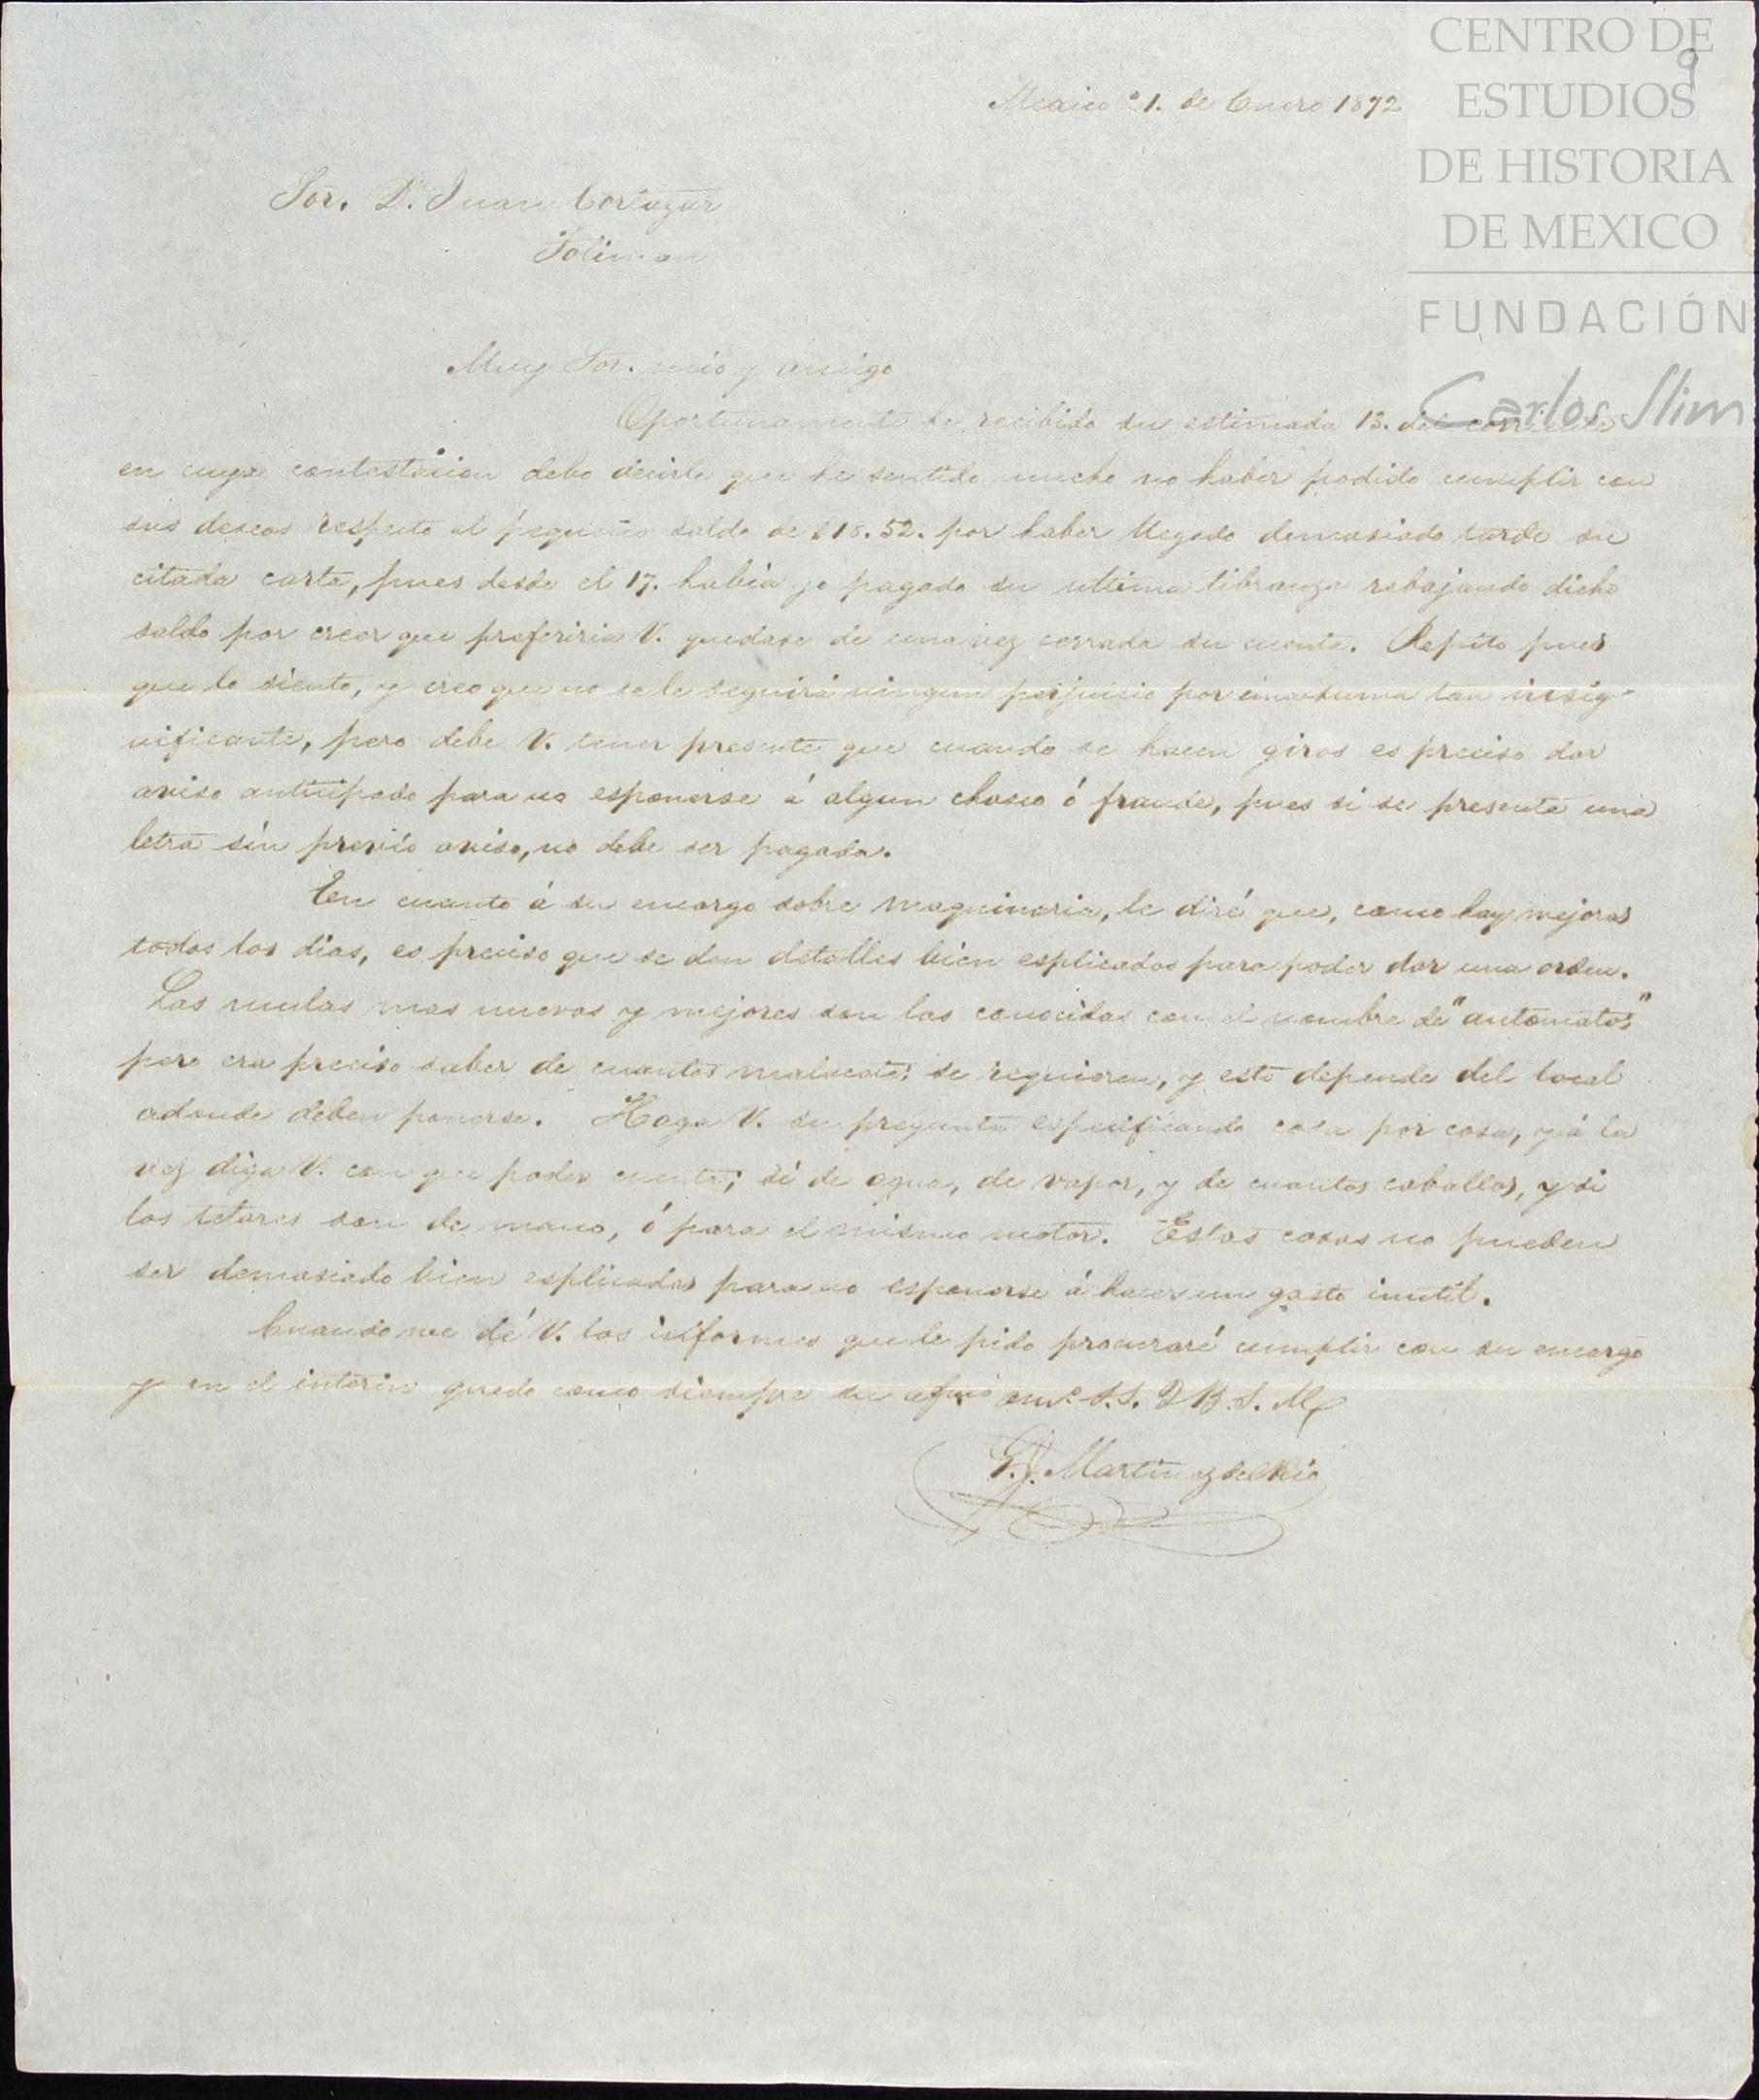 CENTRO DE
ESTUDIOS
DE HISTORIA
DE MEXICO
FUNDACIÓN
Carlos Slim
9
Mexico 21. de Enero 1872
Sor. Dn. Juan Cortazar
Toliman
Muy Sor. mio y amigo
Oportunamente he recibido su estimada 13. del corriente
en cuya contestacion debo decirle que he sentido mucho no haber podido cumplir con
sus deseos respecto al pequeño saldo de $18.52. por haber llegado demasiado tarde su
citada carta, pues desde el 17. había yo pagado su ultima libranza rebajando dicho
saldo por creer que preferiria V. quedase de una vez cerrada su cuenta. Repito pues
que lo siento, y creo que no se le seguirá ningun perjuicio por una suma tan insig-
nificante, pero debe V. tener presente que cuando se hacen giros es preciso dar
aviso anticipado para no esponerse á algun chasco ó fraude, pues si se presenta una
letra sin previo aviso, no debe ser pagada.
En cuanto á su encargo sobre maquinaria, le diré que, como hay mejoras
todos los dias, es preciso que se den detalles bien esplicados para poder dar una orden.
Las mulas mas nuevas y mejores son las conocidas con el nombre de "automatos"
pero era preciso saber de cuantos malacates se requieren, y esto depende del local
adonde deben ponerse. Haga V. su pregunta especificando cosa por cosa, y á la
vez diga V. con que poder cuenta; si de agua, de vapor, y de cuantos caballos, y si
los telares son de mano, ó para el mismo motor. Estas cosas no pueden
ser demasiado bien esplicadas para no esponerse á hacer un gasto inutil.
Cuando me dé V. los informes que le pido procuraré cumplir con su encargo
y en el interin quedo como siempre su afmo amo. S.S. Q B. S. M.
Martinez del Rio